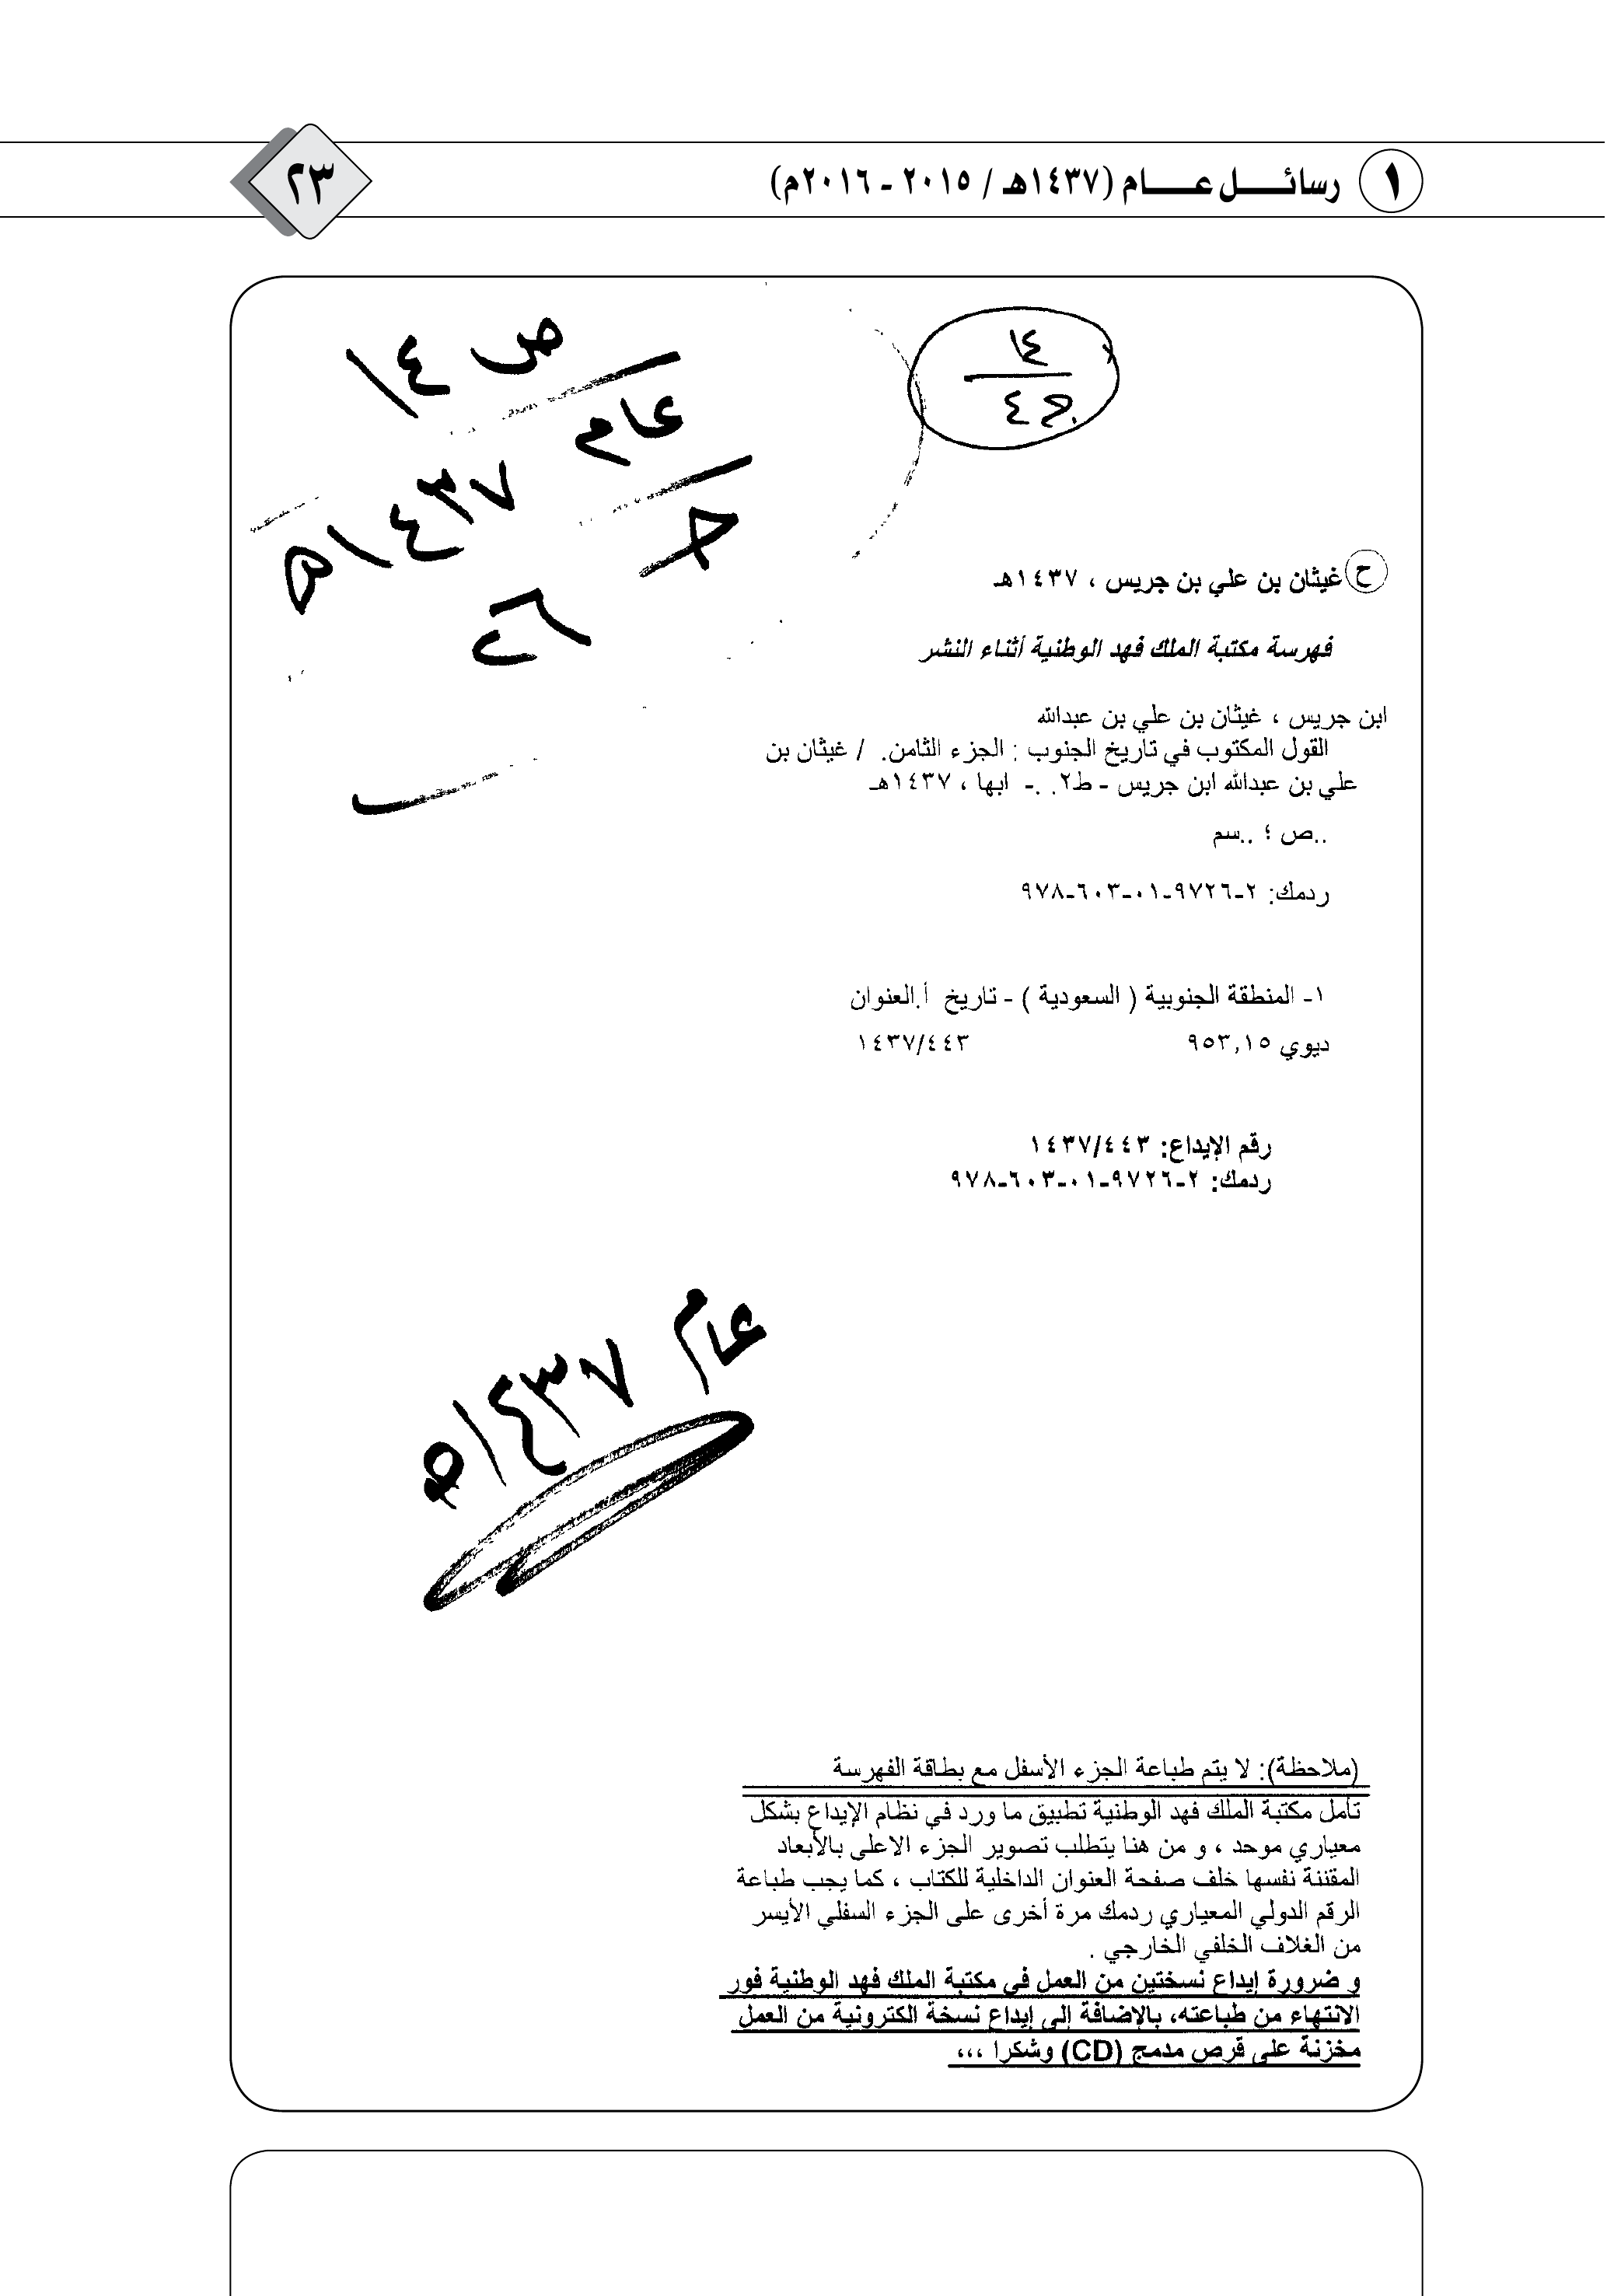 ١ رسائــــل عــــام (١٤٣٧هـ / ٢٠١٥ - ٢٠١٦م)
٢٣
١٤
ج٤
ص ١٤
عام
١٤٣٧هـ
ح غيثان بن علي بن جريس ، ١٤٣٧هـ
فهرسة مكتبة الملك فهد الوطنية أثناء النشر
ابن جريس ، غيثان بن علي بن عبدالله
القول المكتوب في تاريخ الجنوب : الجزء الثامن. / غيثان بن
علي بن عبدالله ابن جريس - ط٢. .- ابها ، ١٤٣٧هـ
..ص ؛ ..سم
ردمك: ٢-٩٧٢٦-٠١-٦٠٣-٩٧٨
١- المنطقة الجنوبية ( السعودية ) - تاريخ أ.العنوان
ديوي ٩٥٣,١٥ ١٤٣٧/٤٤٣
رقم الإيداع: ١٤٣٧/٤٤٣
ردمك: ٢-٩٧٢٦-٠١-٦٠٣-٩٧٨
عام ١٤٣٧هـ
(ملاحظة): لا يتم طباعة الجزء الأسفل مع بطاقة الفهرسة
تأمل مكتبة الملك فهد الوطنية تطبيق ما ورد في نظام الإيداع بشكل
معياري موحد ، و من هنا يتطلب تصوير الجزء الاعلى بالأبعاد
المقننة نفسها خلف صفحة العنوان الداخلية للكتاب ، كما يجب طباعة
الرقم الدولي المعياري ردمك مرة أخرى على الجزء السفلي الأيسر
من الغلاف الخلفي الخارجي .
و ضرورة إيداع نسختين من العمل في مكتبة الملك فهد الوطنية فور
الانتهاء من طباعته، بالإضافة إلى إيداع نسخة الكترونية من العمل
مخزنة على قرص مدمج (CD) وشكرا ،،،